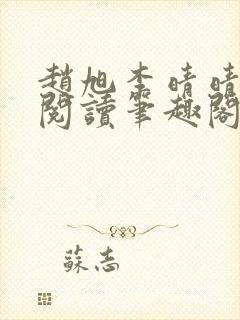 趙旭李晴晴
閱讀筆趣閣
蘇志